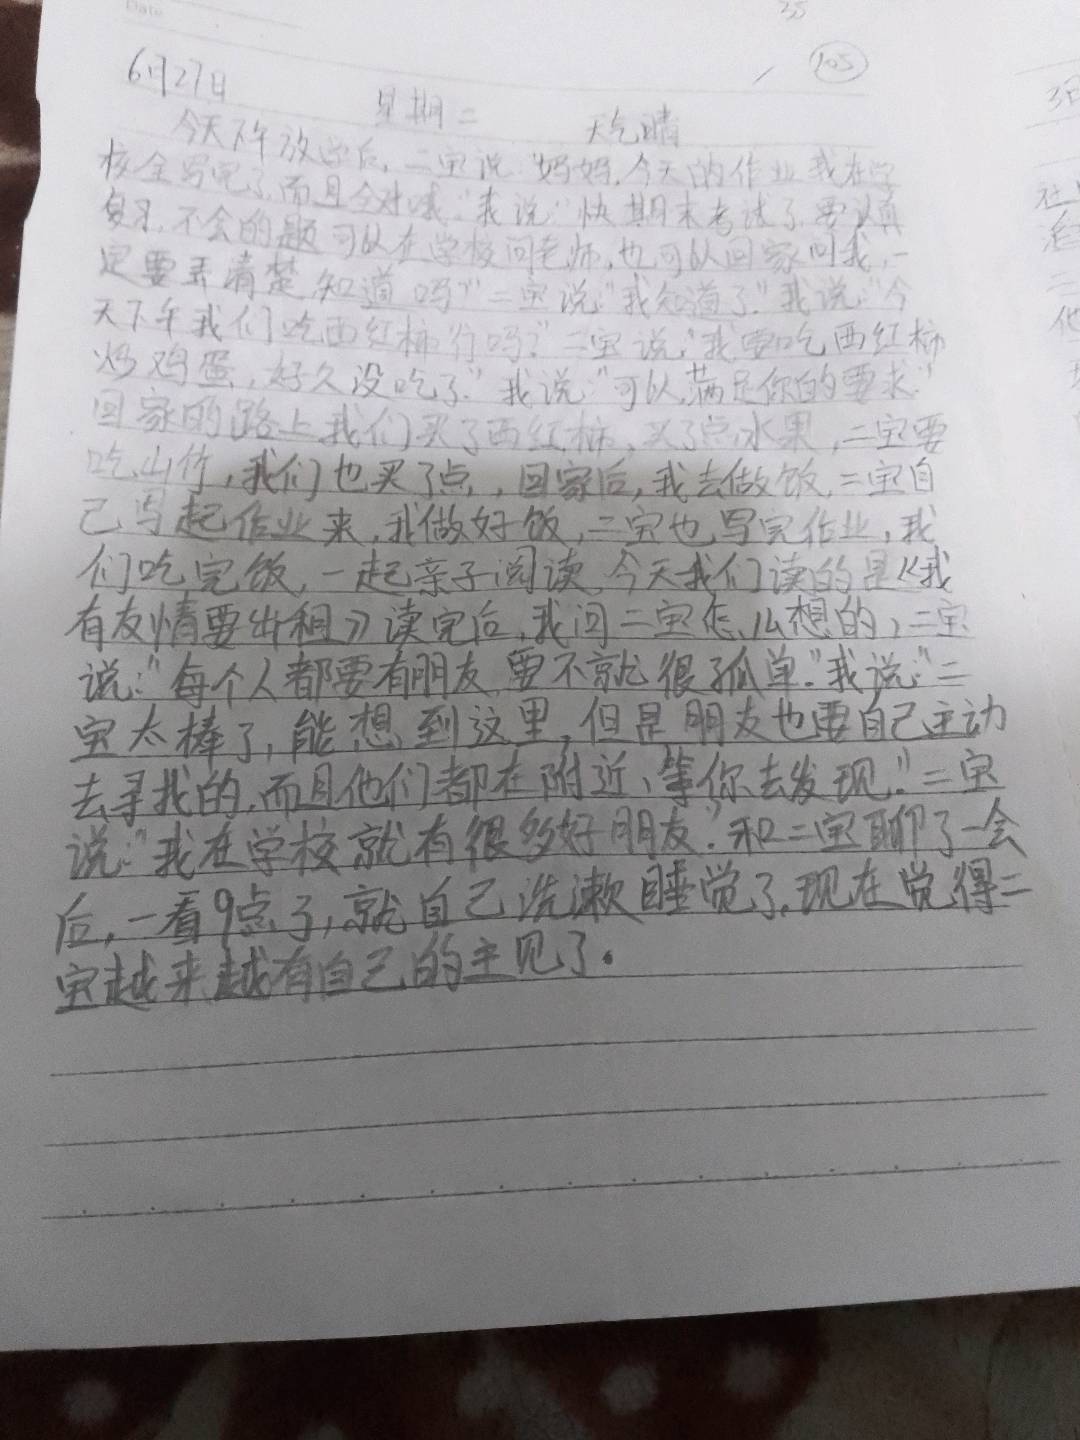 Date
35
105
6月27日 星期二 天气晴
今天下午放学后,二宝说:"妈妈,今天的作业我在学
校全写完了,而且全对哦."我说:"快期末考试了,要认真
复习,不会的题可以在学校问老师,也可以回家问我,一
定要弄清楚知道吗?"二宝说:"我知道了."我说:"今
天下午我们吃西红柿行吗?"二宝说:"我要吃西红柿
炒鸡蛋,好久没吃了"我说:"可以,满足你的要求."
回家的路上,我们买了西红柿,买了点水果,二宝要
吃山竹,我们也买了点,回家后,我去做饭,二宝自
己写起作业来,我做好饭,二宝也写完作业,我
们吃完饭,一起亲子阅读,今天我们读的是《我
有友情要出租》读完后,我问二宝怎么想的,二宝
说:"每个人都要有朋友,要不就很孤单."我说:"二
宝太棒了,能想到这里,但是朋友也要自己主动
去寻找的,而且他们都在附近,等你去发现."二宝
说:"我在学校就有很多好朋友".和二宝聊了一会
后,一看9点了,就自己洗漱睡觉了,现在觉得二
宝越来越有自己的主见了.